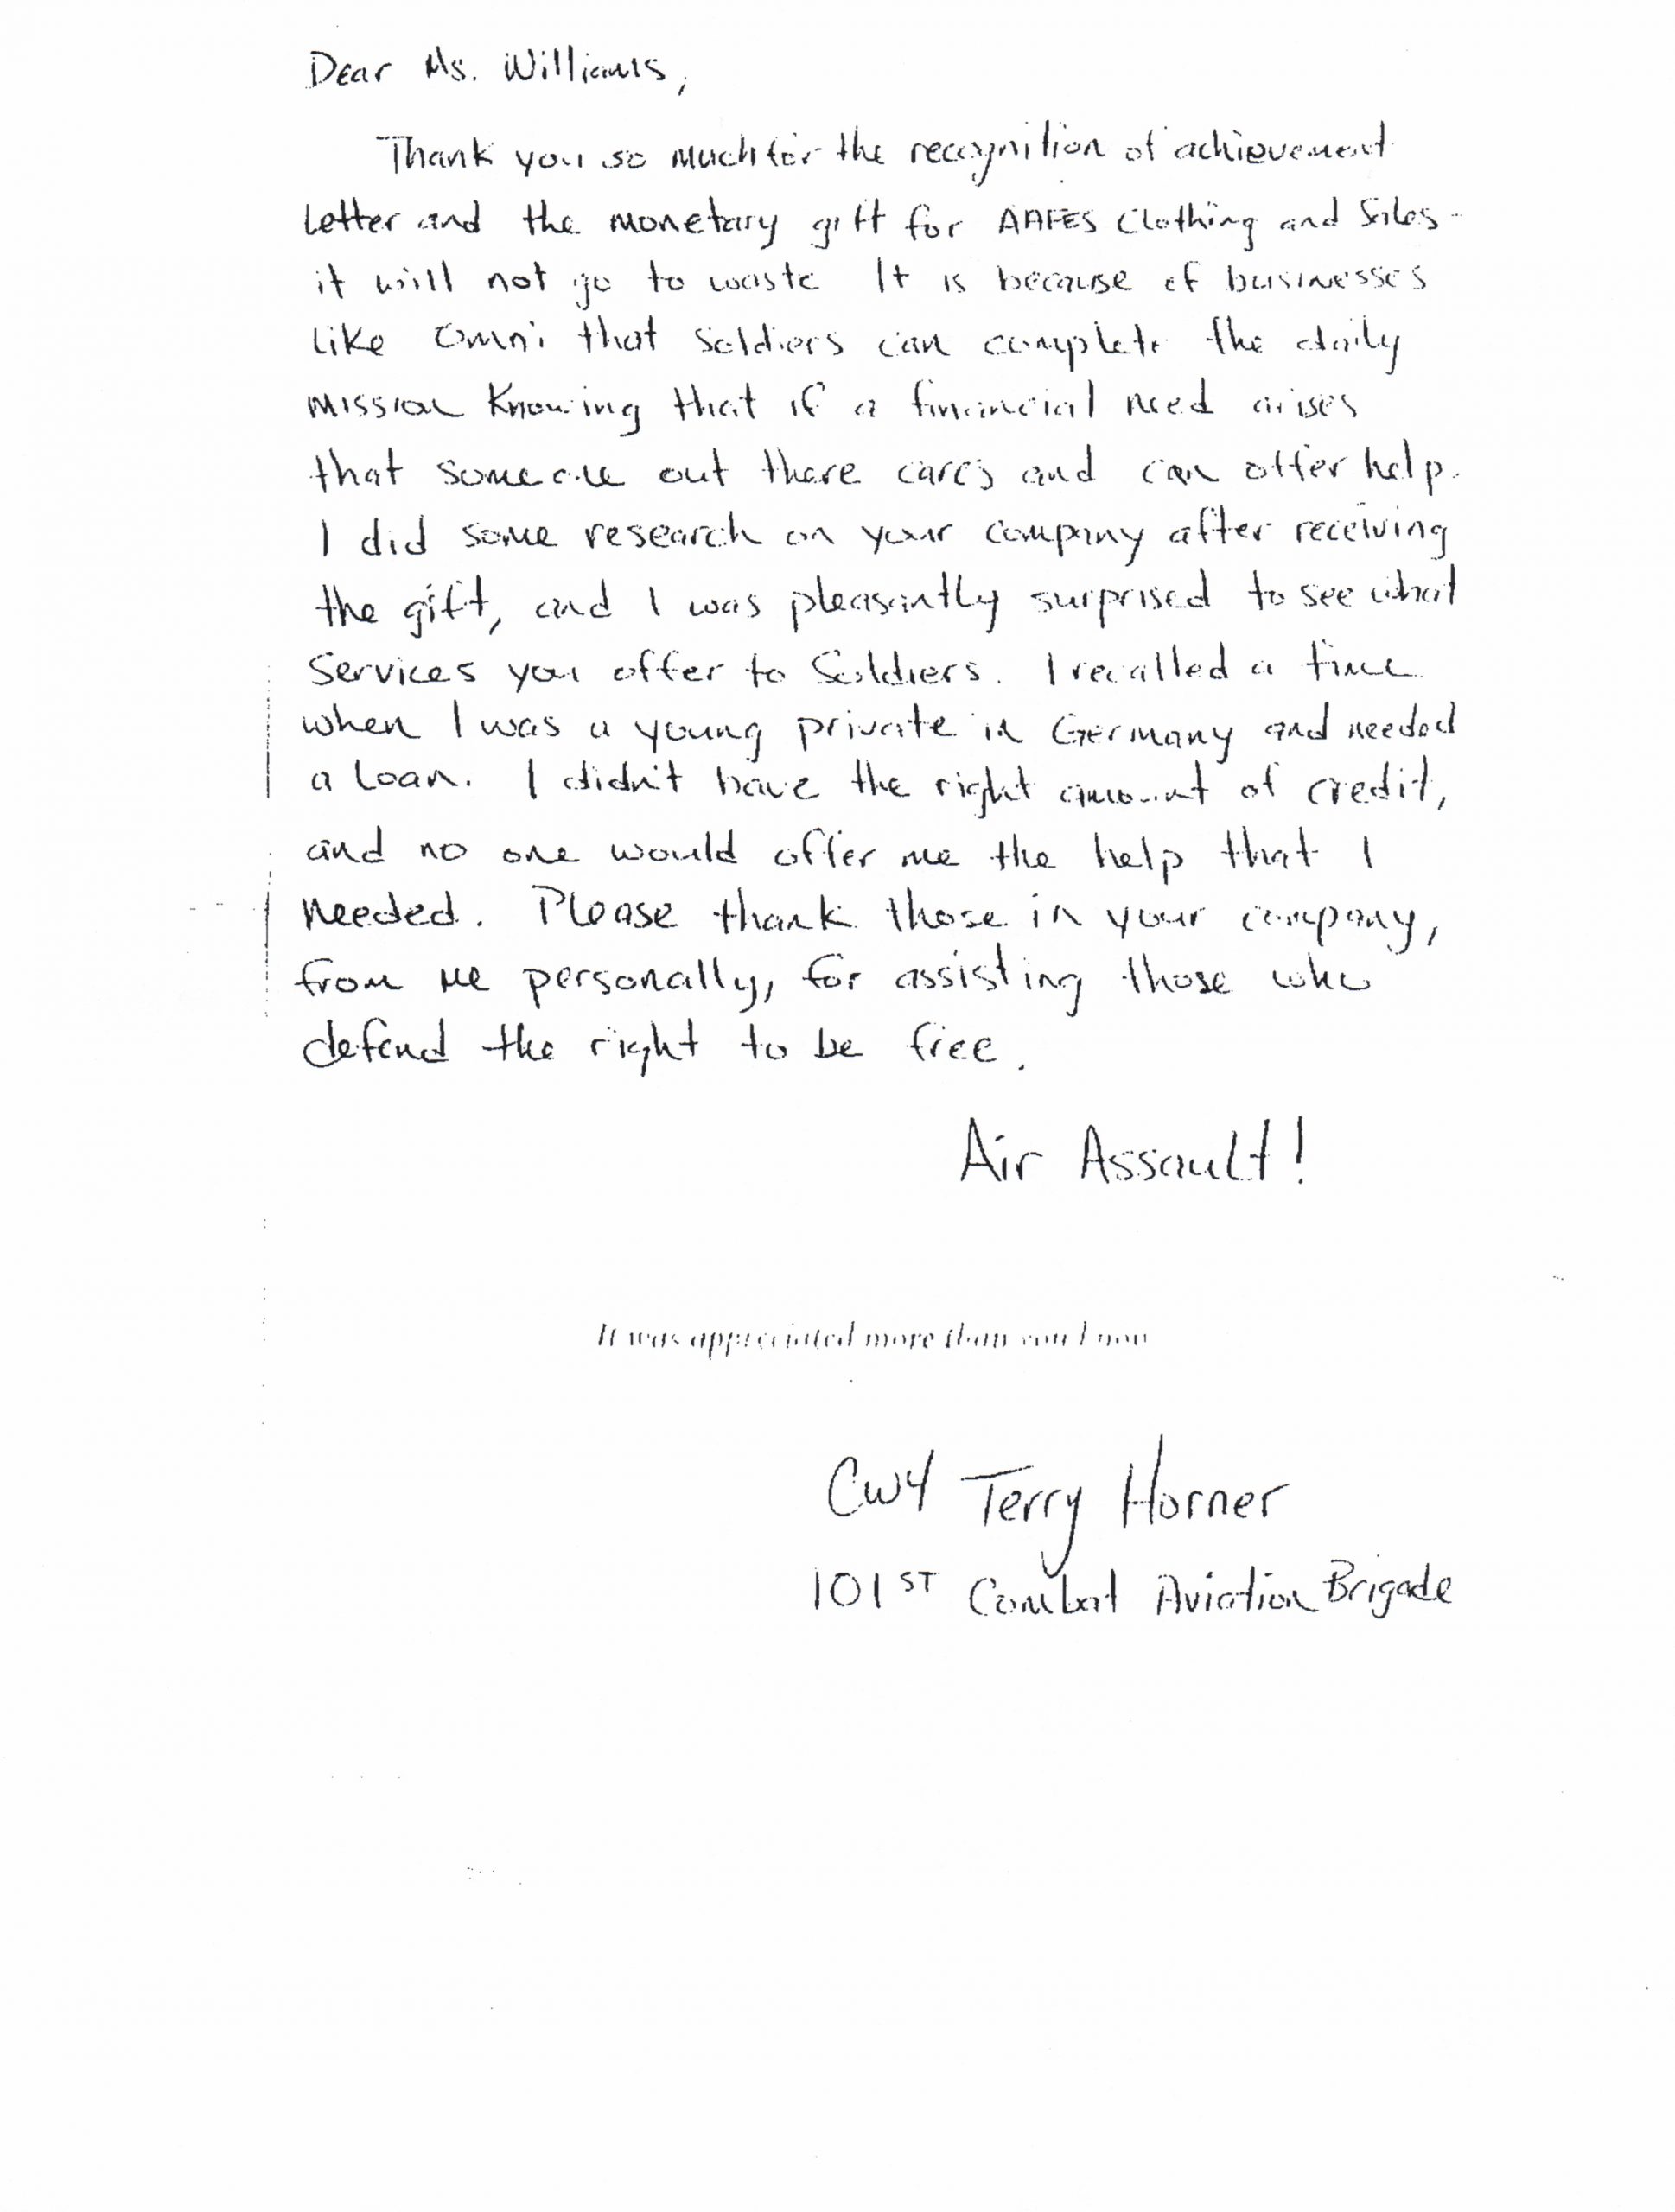 Dear Ms. Williams,
Thank you so much for the recognition of achievement
letter and the monetary gift for AAFES Clothing and Sales -
it will not go to waste It is because of businesses
like Omni that Soldiers can complete the daily
mission knowing that if a financial need arises
that someone out there cares and can offer help.
I did some research on your company after receiving
the gift, and I was pleasantly surprised to see what
Services you offer to Soldiers. I recalled a time
when I was a young private in Germany and needed
a loan. I didn't have the right amount of credit,
and no one would offer me the help that I
needed. Please thank those in your company,
from me personally, for assisting those who
defend the right to be free.
Air Assault!
It was appreciated more than you know
CW4 Terry Horner
101ST Combat Aviation Brigade